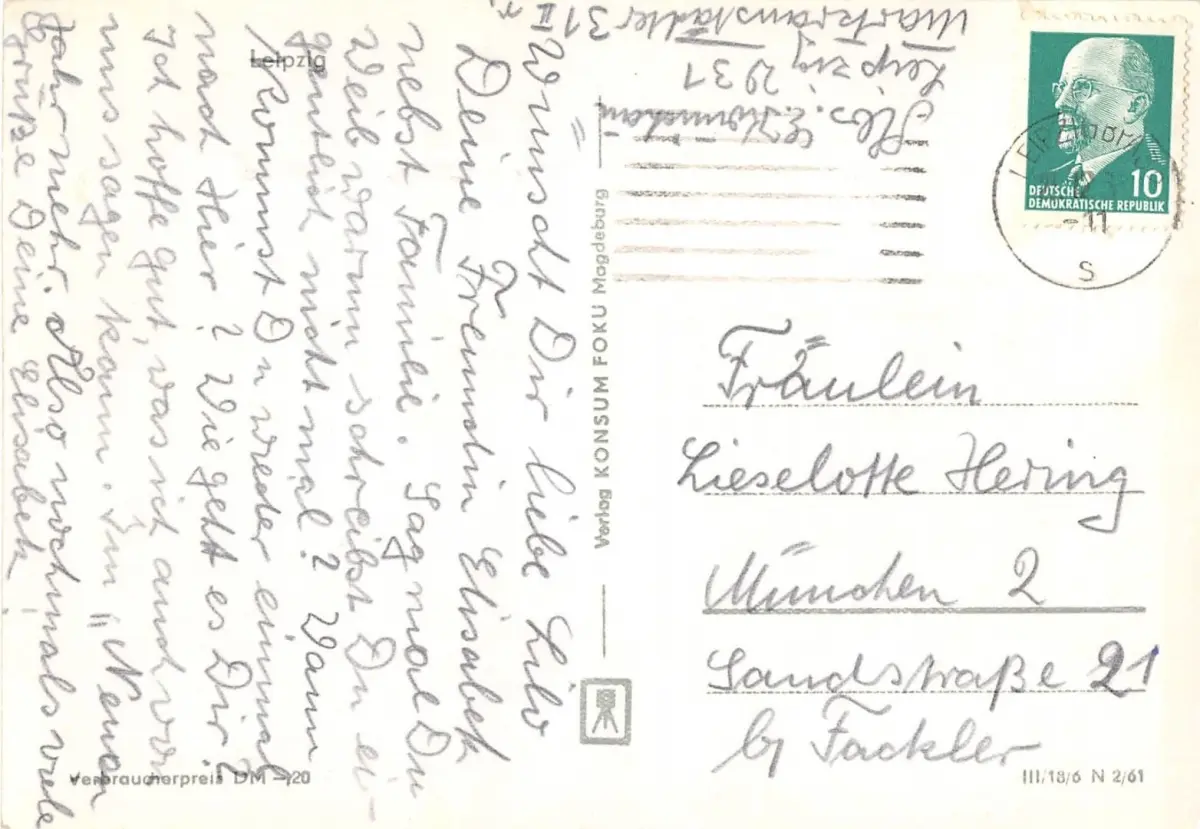 Leipzig
Wünscht Dir liebe Lilo
Deine Freundin Elisabeth
nebst Familie. Sag mal Du
Weib warum schreibst Du ei-
gentlich nicht mal? Wann
kommst Du wieder einmal
nach Hier? Wie geht es Dir?
Ich hoffe gut, was ich auch von
uns sagen kann. Im „Neuen
Jahr mehr. Also nochmals viele
Grüße Deine Elisabeth
Verbraucherpreis DM -,20
Verlag KONSUM FOKU Magdeburg
Abs. E.
Leipzig 2931
Markranstädter 31 II r.
DEUTSCHE
DEMOKRATISCHE REPUBLIK
10
LEIPZIG
-11
S
Fräulein
Lieselotte Hering
München 2
Sandstraße 21
by Fackler
III/18/6 N 2/61